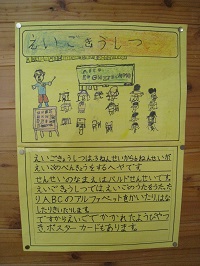 えいごきょうしつ
ABCD
えいごきょうしつは1ねんせいから6ねんせいが
えいごのべんきょうをするへやです。
せんせいのなまえはバルドせんせいです。
えいごきょうしつではえいごのうたをうたっ
たりABCのアルファベットをかいたり、はな
したりきいたりします。
ですからえいごでかかれたようびやつ
きポスターカードもあります。